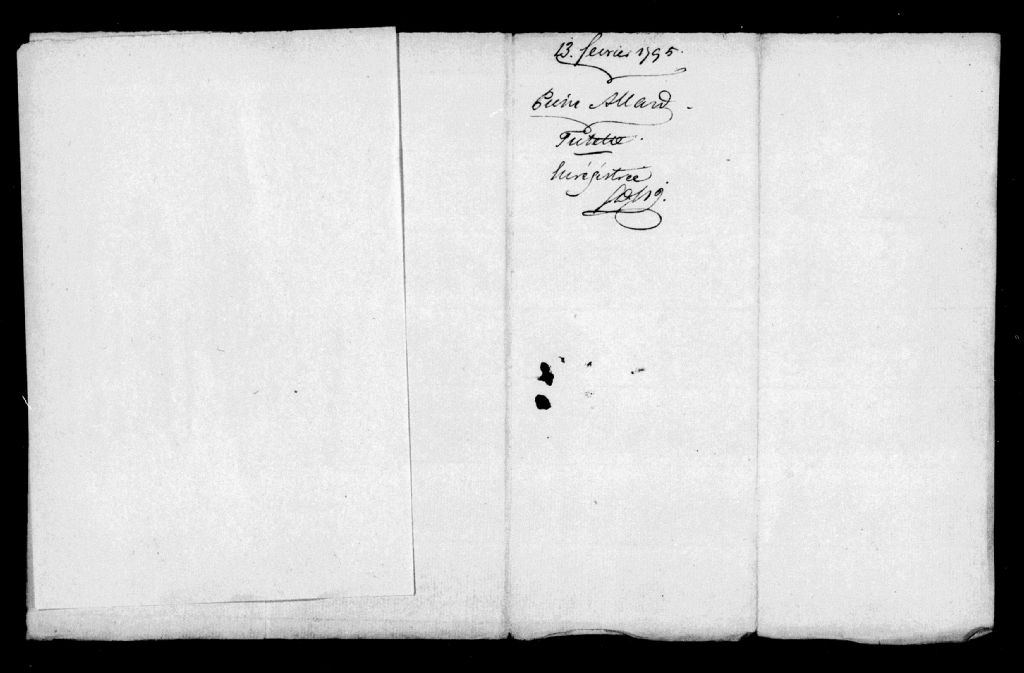 13. fevrier 1795.
Pierre Allard.
Tutelle.
Enrégistrée.